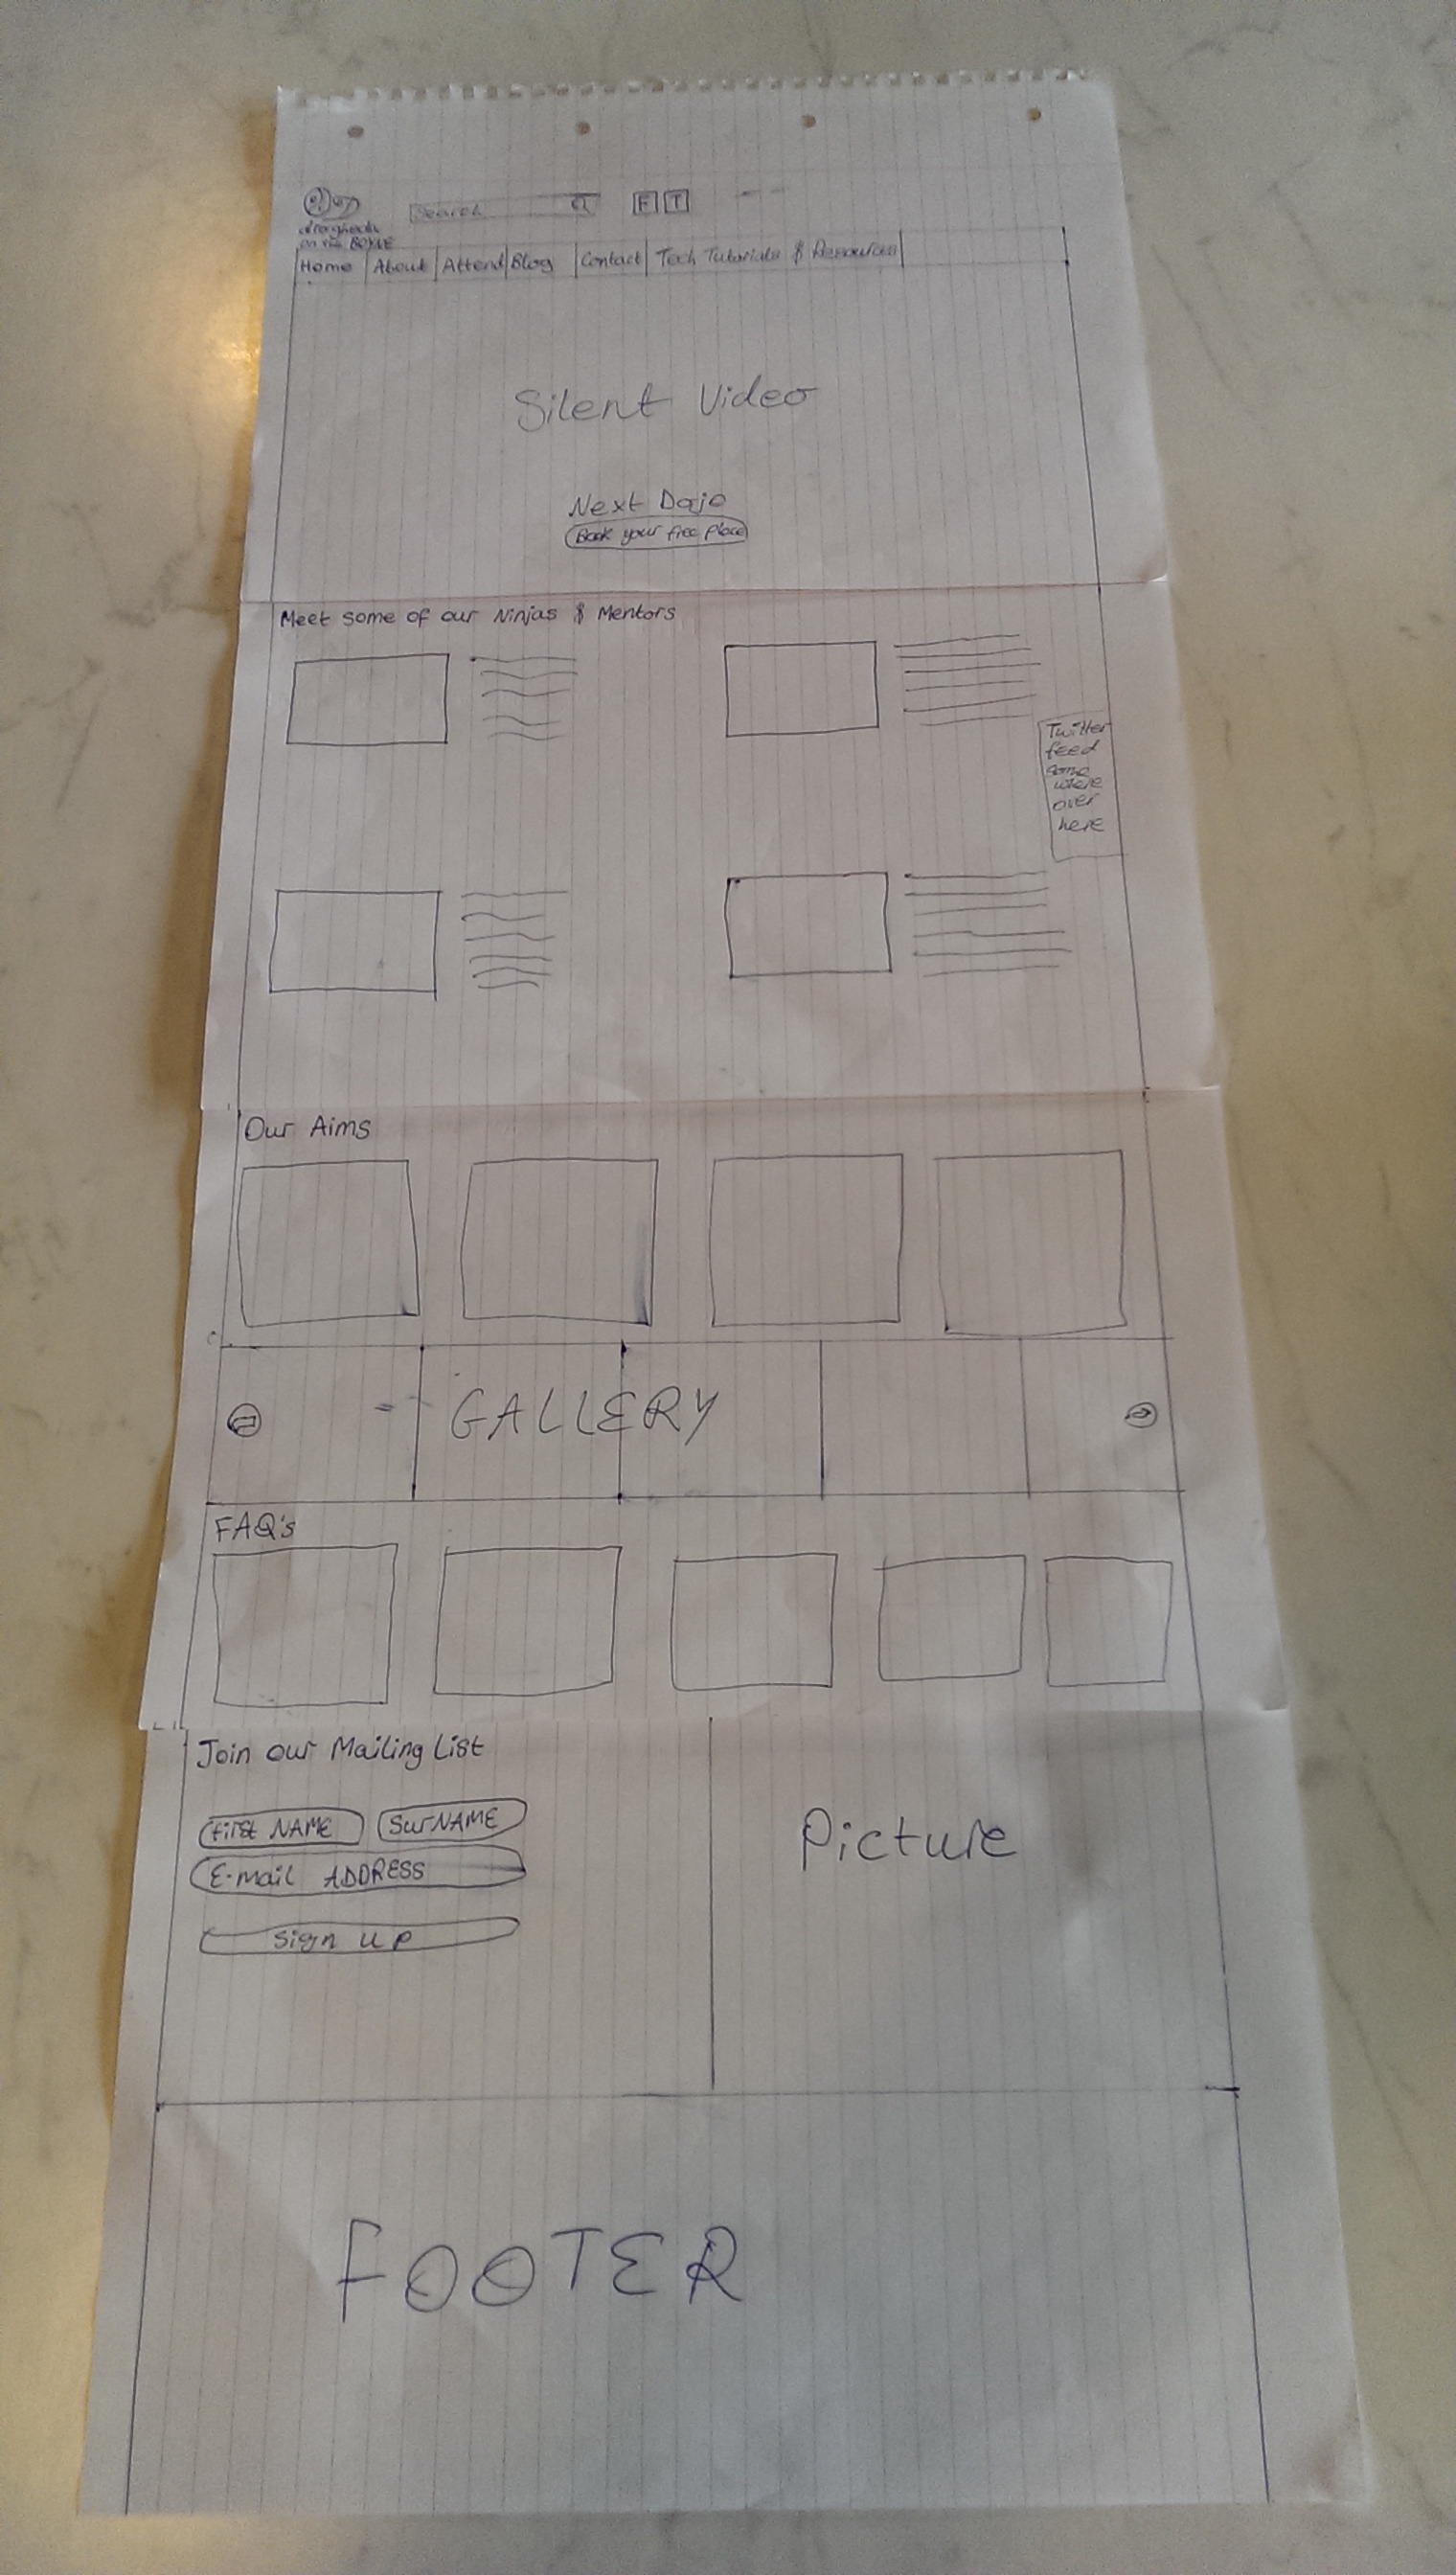 Search
F T
drogheda
on the BOYNE
Home About Attend Blog Contact Tech Tutorials & Resources
Silent Video
Next Dojo
Book your free place
Meet some of our Ninjas & Mentors
Twitter
feed
some
where
over
here
Our Aims
GALLERY
FAQ's
Join our Mailing List
First NAME SurNAME
E-mail ADDRESS
Sign up
Picture
FOOTER